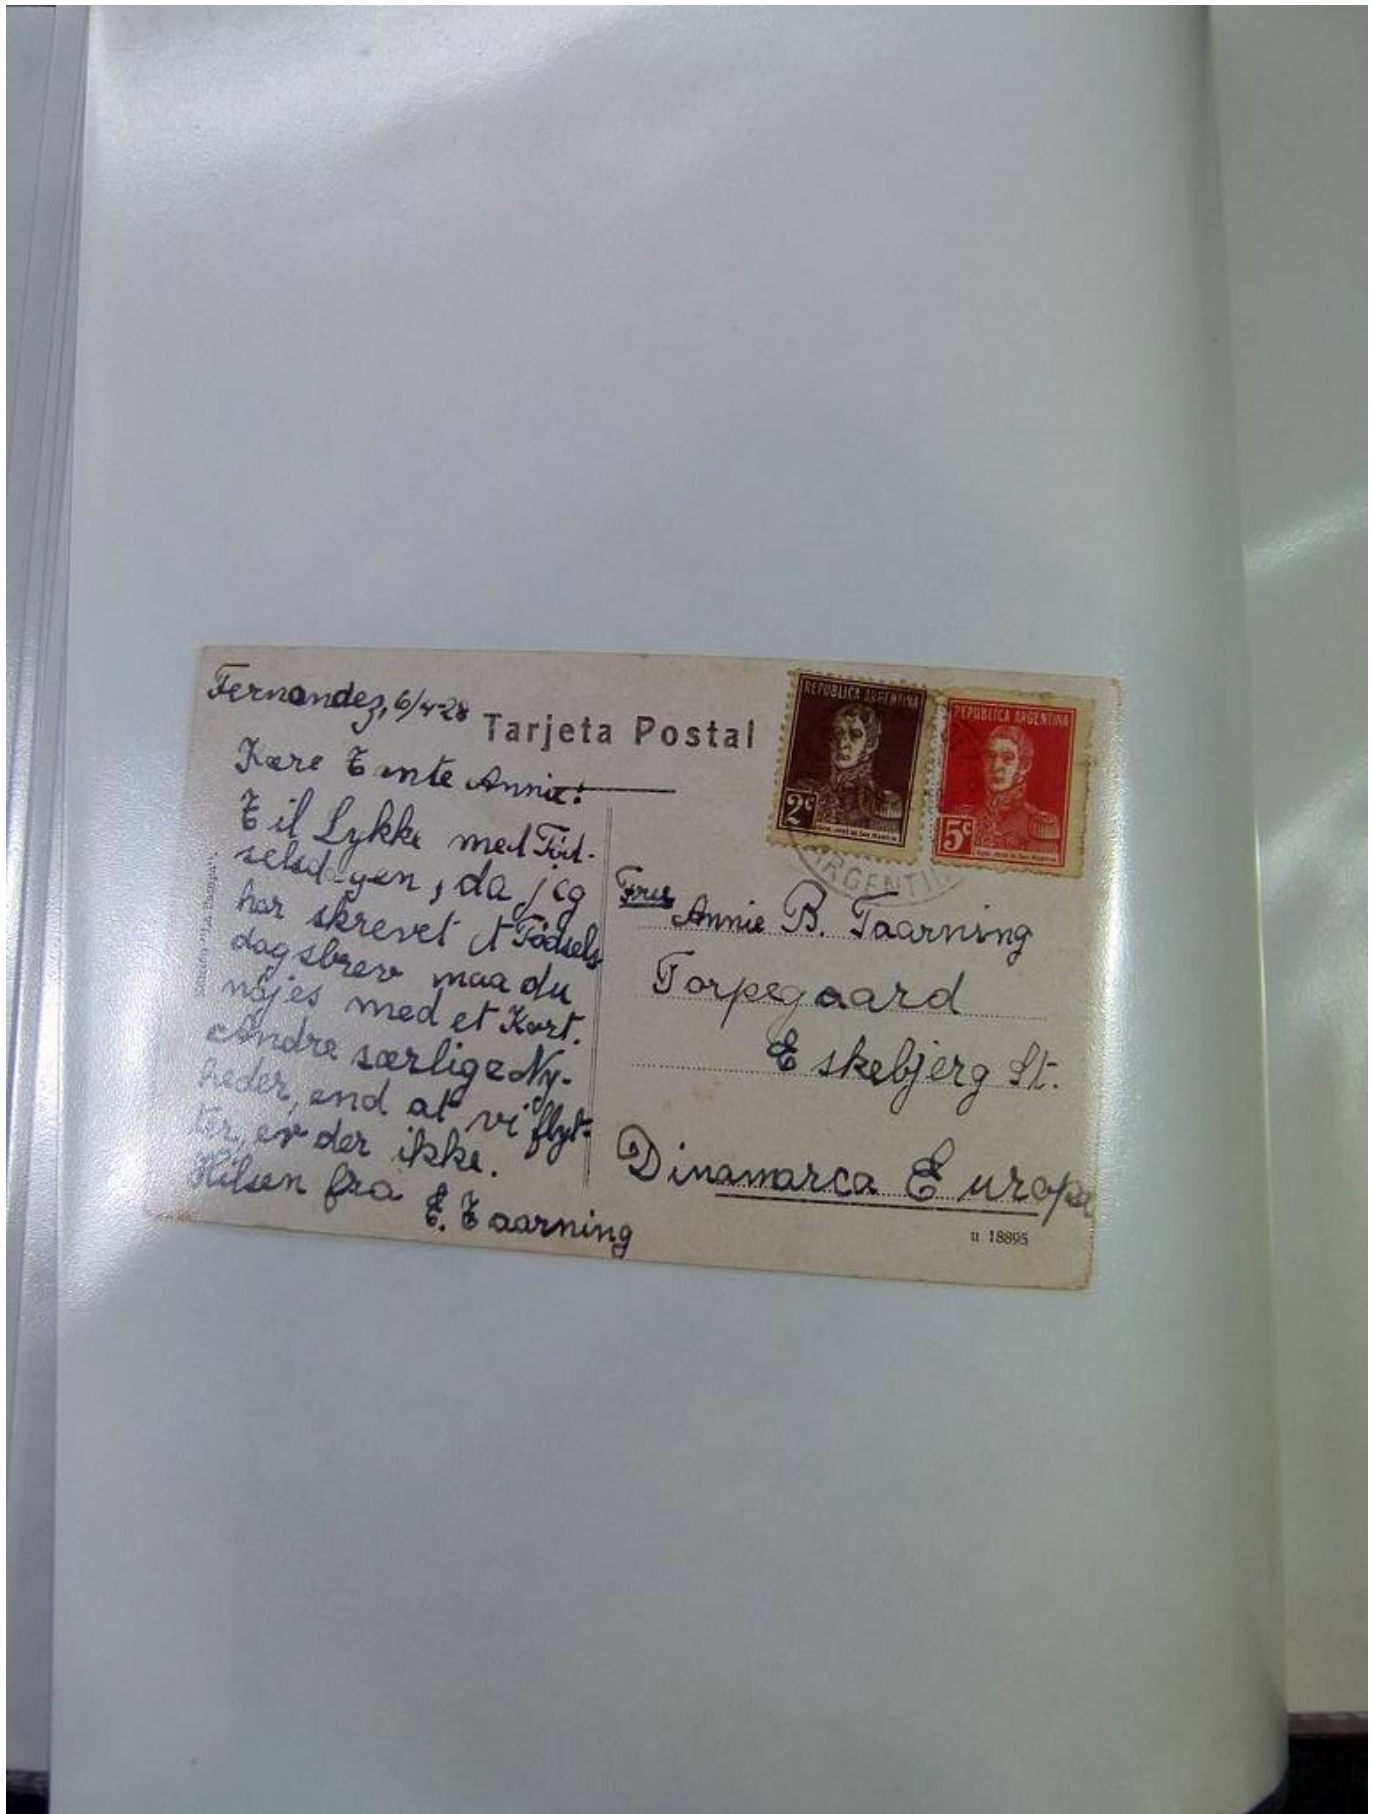 Fernandez, 6/4-28
Tarjeta Postal
Kære Tante Annie!
Til Lykke med Föd-
selsdagen, da jeg
har skrevet et Födsels
dagsbrev maa du
nöjes med et Kort.
Andre særlige Ny-
heder, end at vi flyt-
ter, er der ikke.
Hilsen fra E. Taarning
REPUBLICA ARGENTINA
2c
GRAL. JOSÉ DE SAN MARTIN
REPUBLICA ARGENTINA
5c
GRAL. JOSÉ DE SAN MARTIN
ARGENTIN
Fru Annie B. Taarning
Torpegaard
Eskebjerg St.
Dinamarca Europa
u 18895